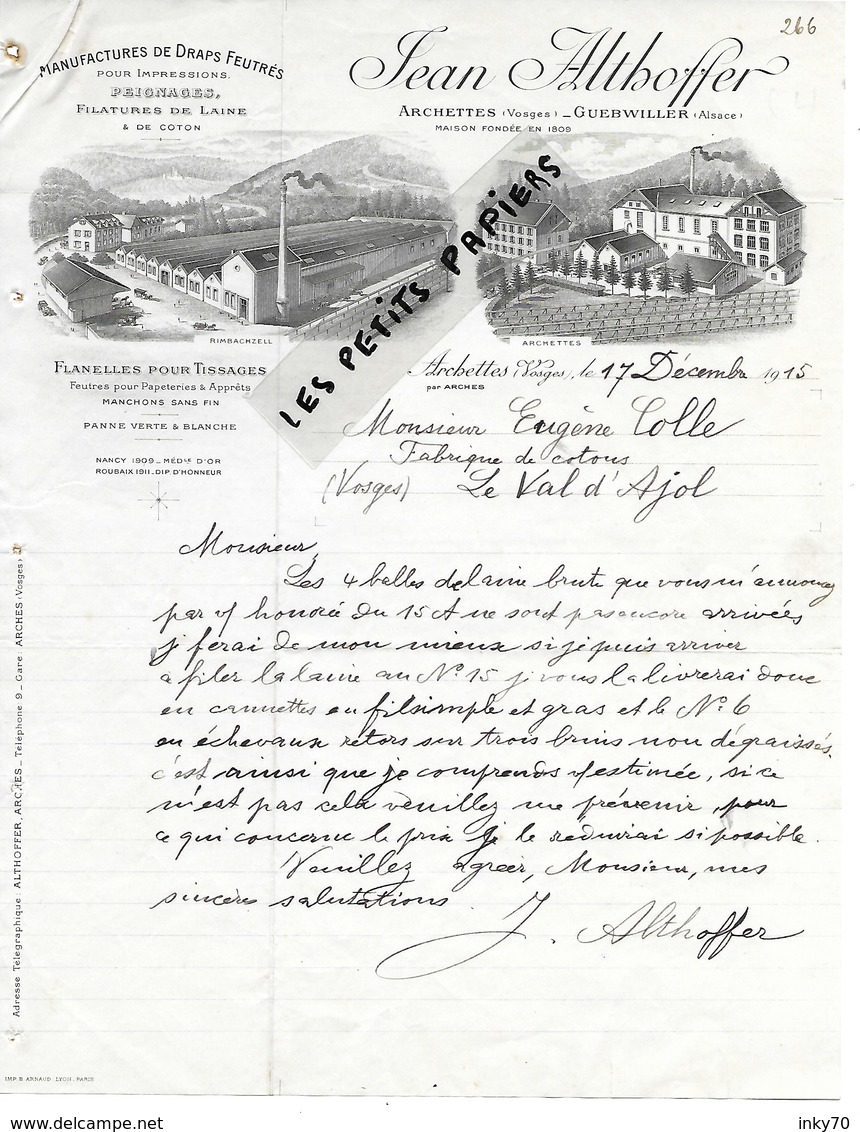 266
MANUFACTURES DE DRAPS FEUTRÉS
POUR IMPRESSIONS.
PEIGNAGES,
FILATURES DE LAINE
& DE COTON
Jean Althoffer
ARCHETTES (Vosges) _ GUEBWILLER (Alsace)
MAISON FONDÉE EN 1809
LES PETITS PAPIERS
RIMBACHZELL
ARCHETTES
FLANELLES POUR TISSAGES
Feutres pour Papeteries & Apprêts
MANCHONS SANS FIN
PANNE VERTE & BLANCHE
NANCY 1909 _ MÉDLE D'OR
ROUBAIX 1911 _ DIP. D'HONNEUR
Archettes (Vosges), le 17 Décembre 1915
par ARCHES
Monsieur Eugène Colle
Fabrique de cotons
(Vosges) Le Val d'Ajol
Monsieur,
Les 4 balles de laine brute que vous m'annoncez
par v/ honorée du 15 Ct ne sont pas encore arrivées
je ferai de mon mieux si je puis arriver
à filer la laine au N° 15 je vous la livrerai donc
en cannettes en fil simple et gras et le N° 6
en échevaux retors sur trois brins non dégraissés.
c'est ainsi que je comprends v/ estimée, si ce
n'est pas cela veuillez me prévenir, pour
ce qui concerne le prix je le réduirai si possible.
Veuillez agréer, Monsieur, mes
sincères salutations.
J. Althoffer
Adresse Télégraphique : ALTHOFFER, ARCHES _ Téléphone 9 _ Gare : ARCHES (Vosges)
IMP. B. ARNAUD. LYON. PARIS
inky70